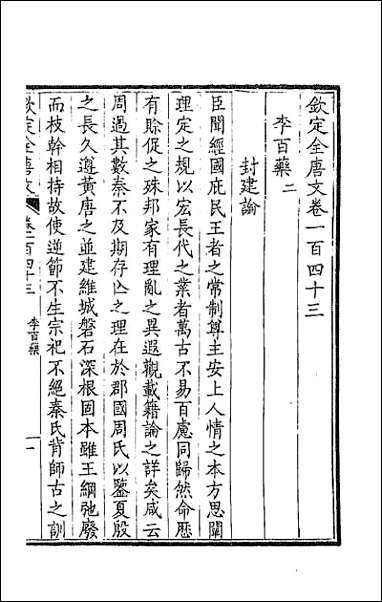 欽定全唐文卷一百四十三
李百藥 二
封建論
臣聞經國庇民王者之常制尊主安上人情之本方思闡
理定之規以宏長代之業者萬古不易百慮同歸然命歴
有賒促之殊邦家有理亂之異遐觀載籍論之詳矣咸云
周過其數秦不及期存亾之理在於郡國周氏以鑒夏殷
之長久遵黃唐之並建維城磐石深根固本雖王綱弛廢
而枝幹相持故使逆節不生宗祀不絕秦氏背師古之訓
欽定全唐文
卷一百四十三
李百藥
一